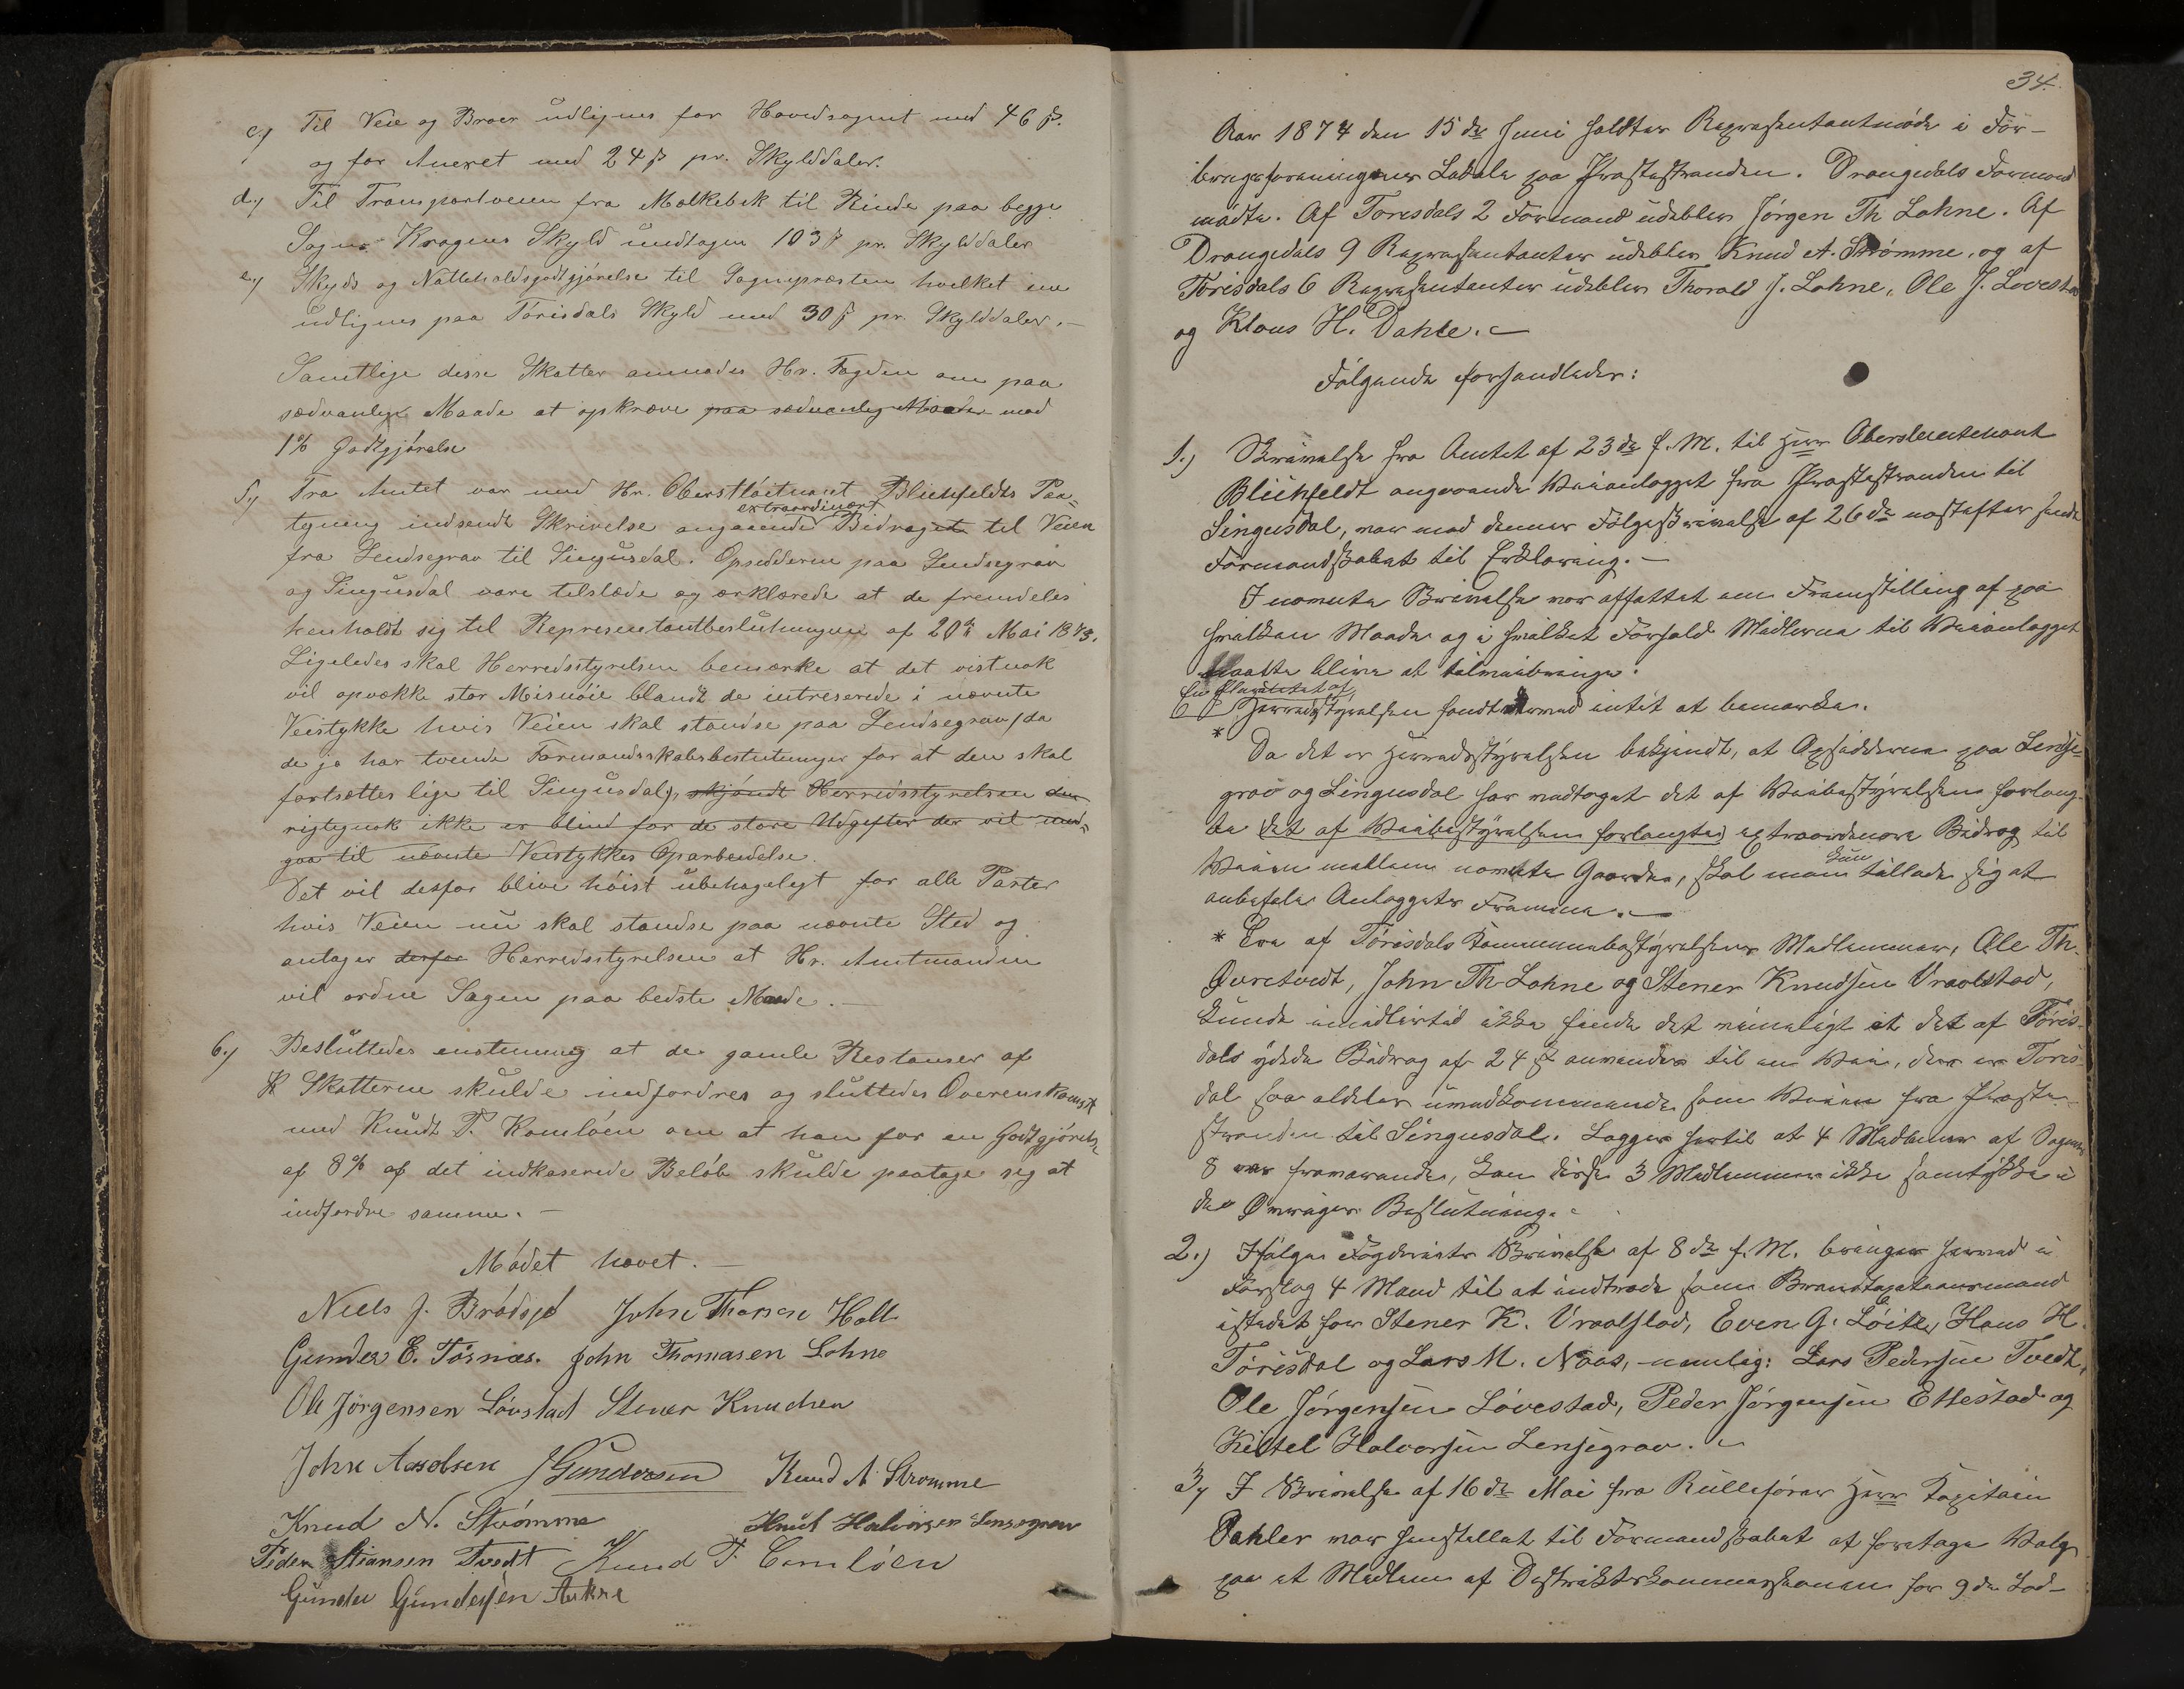 c.) Til Veie og Broer udlignes for Hovedsognet med 46 ß.
og for Anexet med 24 ß pr. Skylddaler.
d.) Til Transportveien fra Molkebek til Rinde paa begge
Sogne Kragerø Skyld undtagen 103 ß pr. Skylddaler
e.) Skyds og Natteholdsgodtgjørelse til Sognepræsten hvilket
udlignes paa Tørisdals Skyld med 30 ß pr. Skylddaler.—
Samtlige disse Skatter anmodes Hr. Fogden om paa
sædvanlige Maade at opkræve paa sædvanlig Maade mod
1% Godtgjørelse
5.) Fra Amtet var med Hr. Oberstløitnant Blichfeldts Paa-
extraordinært
tegning indsendt Skrivelse angaaende Bidraget til Veien
fra Lendsegrav til Singusdal. Opsidderne paa Lendsegrav
og Singusdal vare tilstæde og erklærede at de fremdeles
henholdt sig til Representantbeslutningen af 20de Mai 1873.
Ligeledes skal Herredsstyrelsen bemærke at det vistnok
vil opvække stor Misnøie blandt de intreserede i nævnte
Veistykke hvis Veien skal standse paa Lendsegrav (da
de jo har tvende Formandsskabsbeslutninger for at den skal
fortsættes lige til Singusdal), skjøndt Herredsstyrelsen den
rigtignok ikke er blind for de store Udgifter der vil med-
gaa til nævnte Veistykkes Oparbeidelse.
Det vil desfor blive høist ubehageligt for alle Parter
hvis Veien nu skal standse paa nævnte Sted og
antager derfor Herredsstyrelsen at Hr. Amtmanden
vil ordne Sagen paa bedste Maade.—
6.) Besluttedes enstemmig at de gamle Restanser af
Skatterne skulde indfordres og sluttedes Overenskomst
med Knudt T. Komløen om at han for en Godtgjørelse
af 8% af det indkaserede Beløb skulde paatage sig at
indfordre samme.—
Mødet hævet.—
Niels J. Brødsjø John Thorsen Holt
Gunder E. Tørnæs. John Thomasen Lohne
Ole Jørgensen Løvstad Stener Knudsen
John Aasolsen J Gundersen Knud A. Strømme
Knud N. Strømme Knut Halvorsen Lensegrav
Peder Stiansen Tvedt Knud T. Comløen
Gunder Gundersen Aakre
34.
Aar 1874 den 15de Juni holdtes Repræsentantmøde i For-
brugsforeningens Lokale paa Præstestranden. Drangedals Formænd
mødte. Af Torisdals 2 Formænd udeblev Jørgen Th Lohne. Af
Drangedals 9 Repræsentanter udeblev Knud A. Strømme, og af
Torisdals 6 Repræsentanter udeblev Thorald J. Lohne, Ole J. Lovestad
og Klaus H. Dahle.—
Følgende forhandledes:
1.) Skrivelse fra Amtet af 23de f. M. til Herr Oberslieutenant
Blichfeldt angaaende Veianlægget fra Præstestranden til
Singusdal, var med dennes Følgeskrivelse af 26de næstefter sendt
Formandskabet til Erklæring.—
I nævnte Skrivelse var affattet en Fremstilling af paa
hvilken Maade og i hvilket Forhold Midlerne til Veianlægget
maatte blive at tilveiebringe.
En Pluralitet af
Herredsstyrelsen fandt hermed intet at bemærke.
* Da det er Herredsstyrelsen bekjendt, at Opsidderne paa Lendse-
grav og Singusdal har vedtaget det af Veibestyrelsen forlang-
te det af Veibestyrelsen forlangte extraordinære Bidrag til
kun
Veien mellem nævnte Gaarde, skal man tillade sig at
anbefale Anlæggets Fremme.—
* Tre af Tørisdals Kommunebestyrelses Medlemmer, Ole Th.
Øvretvedt, John Th Lohne og Stener Knudsen Vraalstad,
kunde imidlertid ikke finde det rimeligt at det af Tøris-
dals ydede Bidrag af 24 ß anvendes til en Vei, der er Toris-
dal saa aldeles uvedkommende som Veien fra Præste-
stranden til Singusdal. Lægges hertil at 4 Medlemmer af Sognets
8 var fraværende, kan disse 3 Medlemmer ikke samtykke i
den Beslutning.
2.) Ifølge Fogderiets Skrivelse af 8de f. M. bringes herved i
Forslag 4 Mænd til at indtræde som Brandtaxationsmænd
istedet for Stener K. Vraalstad, Even G. Løite, Hans H.
Tørisdal og Lars M. Naas, nemlig: Lars Pedersen Tvedt,
Ole Jørgensen Løvestad, Peder Jørgensen Ettestad og
Kittel Halvorsen Lensegrav.
3.) I Skrivelse af 16de Mai fra Rulleførar Herr Kapitain
Dahler var henstillet til Formandskabet at foretage Valg
paa et Medlem af Distriktskommissionen for 9de Lod-